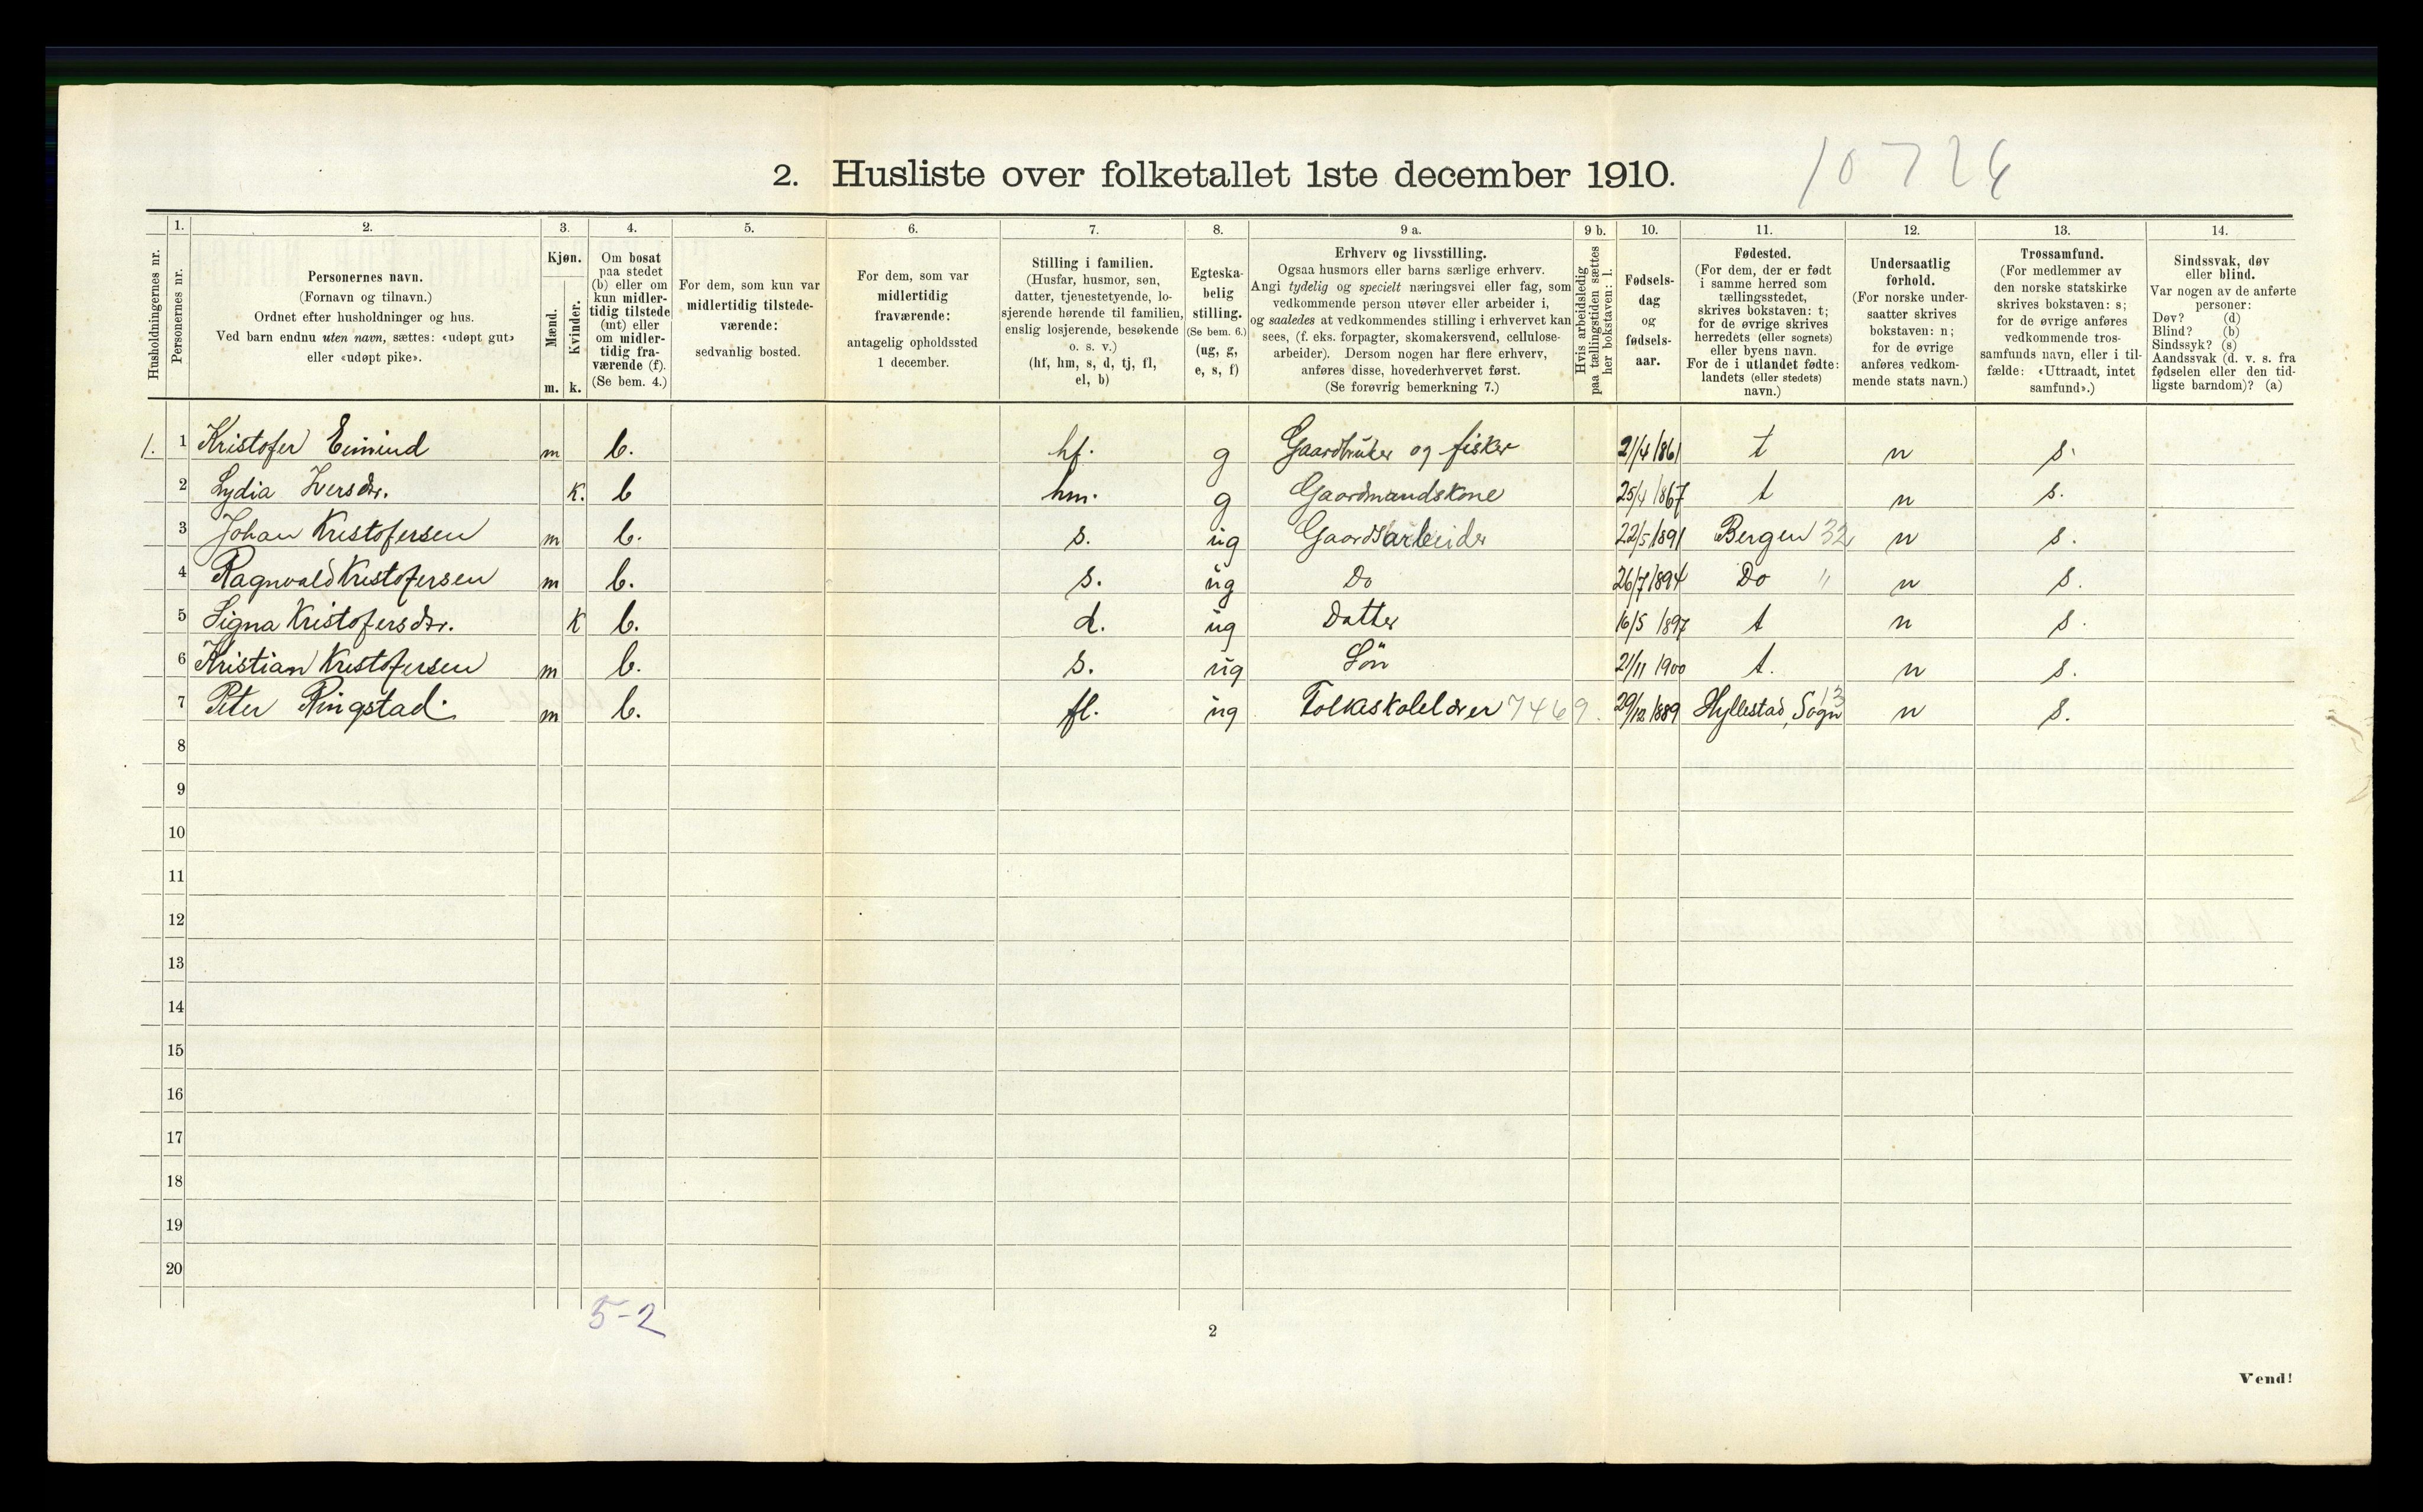 10726
2. Husliste over folketallet 1ste december 1910.
1. 2. 3. 4. 5. 6. 7. 8. 9 a. 9 b. 10. 11. 12. 13. 14.
Husholdningernes nr.
Personernes nr.
Personernes navn.
(Fornavn og tilnavn.)
Ordnet efter husholdninger og hus.
Ved barn endnu uten navn, sættes: «udøpt gut»
eller «udøpt pike».
Kjøn.
Mænd.
Kvinder.
m. k.
Om bosat
paa stedet
(b) eller om
kun midler-
tidig tilstede
(mt) eller
om midler-
tidig fra-
værende (f).
(Se bem. 4.)
For dem, som kun var
midlertidig tilstede-
værende:
sedvanlig bosted.
For dem, som var
midlertidig
fraværende:
antagelig opholdssted
1 december.
Stilling i familien.
(Husfar, husmor, søn,
datter, tjenestetyende, lo-
sjerende hørende til familien,
enslig losjerende, besøkende
o. s. v.)
(hf, hm, s, d, tj, fl,
el, b)
Egteska-
belig
stilling.
(Se bem. 6.)
(ug, g,
e, s, f)
Erhverv og livsstilling.
Ogsaa husmors eller barns særlige erhverv.
Angi tydelig og specielt næringsvei eller fag, som
vedkommende person utøver eller arbeider i,
og saaledes at vedkommendes stilling i erhvervet kan
sees, (f. eks. forpagter, skomakersvend, cellulose-
arbeider). Dersom nogen har flere erhverv,
anføres disse, hovederhvervet først.
(Se forøvrig bemerkning 7.)
Hvis arbeidsledig
paa tællingstiden sættes
her bokstaven: l.
Fødsels-
dag
og
fødsels-
aar.
Fødested.
(For dem, der er født
i samme herred som
tællingsstedet,
skrives bokstaven: t;
for de øvrige skrives
herredets (eller sognets)
eller byens navn.
For de i utlandet fødte:
landets (eller stedets)
navn.)
Undersaatlig
forhold.
(For norske under-
saatter skrives
bokstaven: n;
for de øvrige
anføres vedkom-
mende stats navn.)
Trossamfund.
(For medlemmer av
den norske statskirke
skrives bokstaven: s;
for de øvrige anføres
vedkommende tros-
samfunds navn, eller i til-
fælde: «Uttraadt, intet
samfund».)
Sindssvak, døv
eller blind.
Var nogen av de anførte
personer:
Døv? (d)
Blind? (b)
Sindssyk? (s)
Aandssvak (d. v. s. fra
fødselen eller den tid-
ligste barndom)? (a)
1. 1 Kristofer Eimind m b. hf. g Gaardbruker og fisker 21/4 1861 t n s.
2 Lydia Iversdr. k. b hm. g Gaardmandskone 25/4 1867 t n s.
3 Johan Kristofersen m b. s. ug Gaardsarbeider 22/5 1891 Bergen 32 n s.
4 Ragnvald Kristofersen m b. s. ug Do 26/7 1894 Do " n s.
5 Signa Kristofersdr. k b. d. ug Datter 16/5 1897 t n s.
6 Kristian Kristofersen m b. s. ug Sön 21/11 1900 t. n s.
7 Peter Ringstad. m b. fl. ug Folkeskolelærer 7469. 29/12 1889 Hyllestad, Sogn 13 n s.
8
9
10
11
12
13
14
15
16
17
18
19
20
5-2
2
Vend!